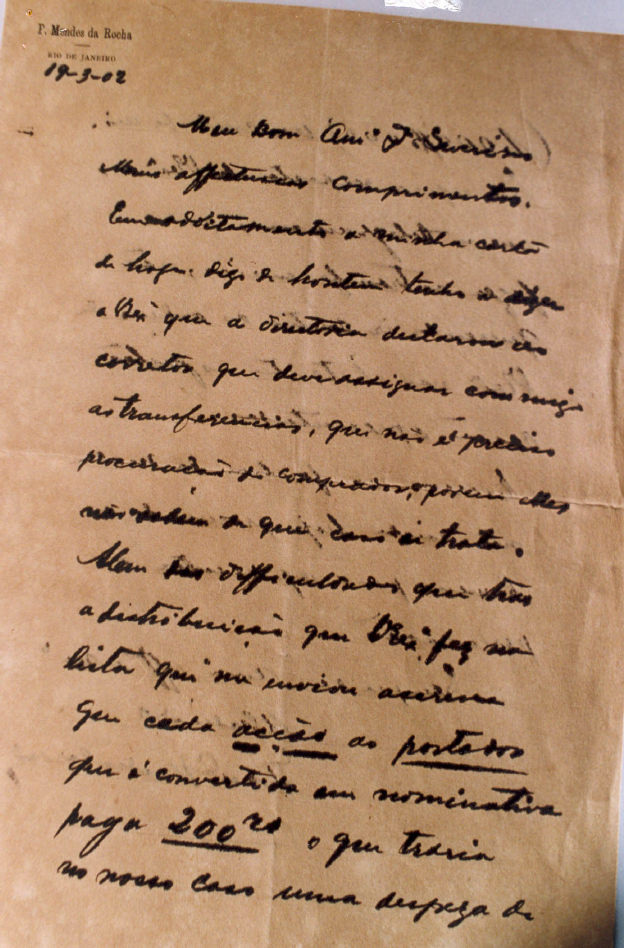 P. Mendes da Rocha
RIO DE JANEIRO
19-3-02
Meu Bom Amº J. Severino
Meus affectuosos comprimentos.
Em additamento a minha carta
de hoje digo de hontem tenho a dizer
a VExª que a directoria declarou ao
corretor que deve assignar commigo
as transferencias, que não é preciso
procuração do comprador, porem elles
não sabem de que caso se trata.
Alem das difficuldades que traz
a distribuição que VExª fez na
lista que me enviou accresce
que cada acção ao portador
que é convertida em nominativa
paga 200rs o que traria
no nosso caso uma despeza de